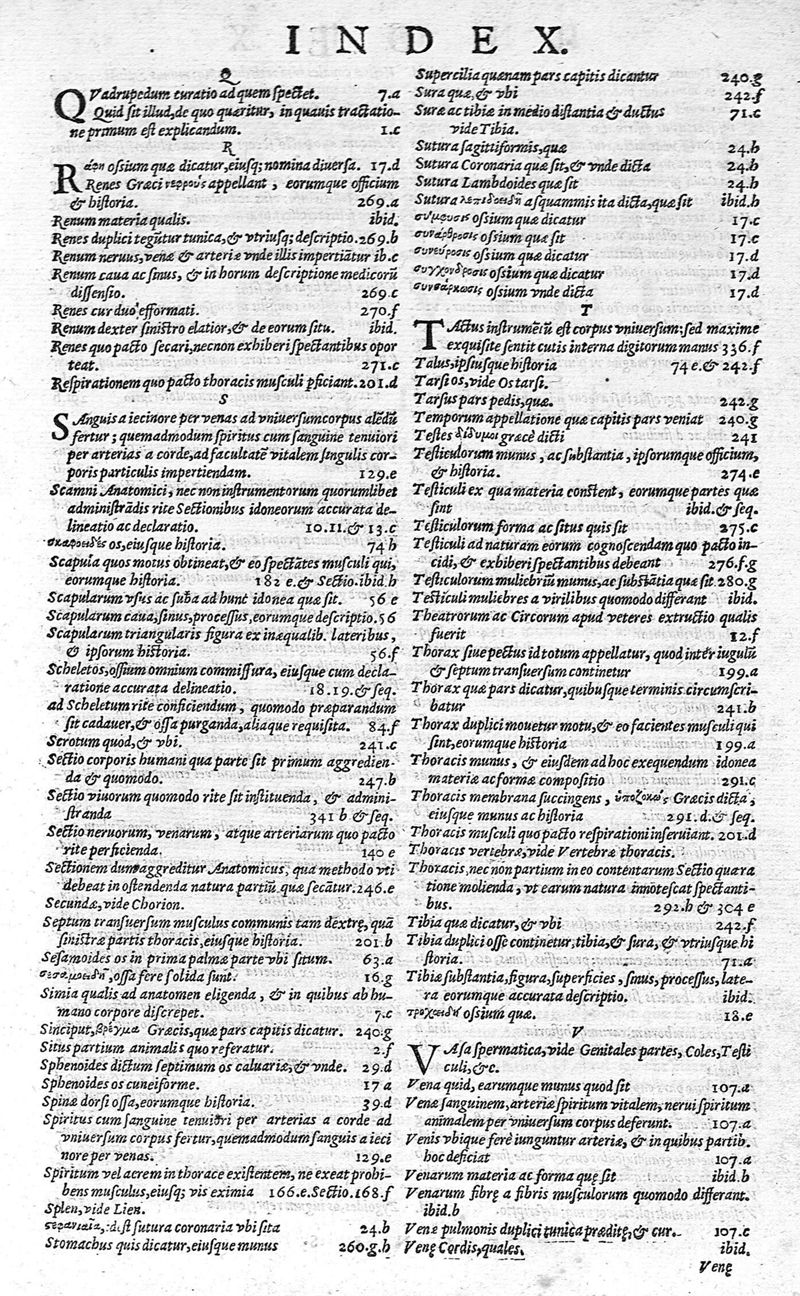 INDEX.
Q
QVadrupedum curatio ad quem spectet. 7.a
Quid sit illud, de quo quæritur, in quauis tractatio-
ne primum est explicandum. 1.c
R
Ράφη ossium quæ dicatur, eiusq; nomina diuersa. 17.d
Renes Græci νεφροὺς appellant, eorumque officium
& historia. 269.a
Renum materia qualis. ibid.
Renes duplici tegũtur tunica, & vtriusq; descriptio. 269.b
Renum neruus, venæ & arteriæ vnde illis impertiãtur ib.c
Renum caua ac sinus, & in horum descriptione medicorũ
dissensio. 269.c
Renes cur duo efformati. 270.f
Renum dexter sinistro elatior, & de eorum situ. ibid.
Renes quo pacto secari, necnon exhiberi spectantibus opor
teat. 271.c
Respirationem quo pacto thoracis musculi pficiant. 201.d
S
SAnguis a iecinore per venas ad vniuersum corpus alẽdũ
fertur; quemadmodum spiritus cum sanguine tenuiori
per arterias a corde, ad facultatẽ vitalem singulis cor-
poris particulis impertiendam. 129.e
Scamni Anatomici, nec non instrumentorum quorumlibet
administrãdis rite Sectionibus idoneorum accurata de-
lineatio ac declaratio. 10.11.& 13.c
σκαφοειδὲς os, eiusque historia. 74 b
Scapula quos motus obtineat, & eo spectãtes musculi qui,
eorumque historia. 182 e. & Sectio. ibid.b
Scapularum vsus ac suba ad hunc idonea quæ sit. 56 e
Scapularum caua, sinus, processus, eorumque descriptio. 56
Scapularum triangularis figura ex inæqualib. lateribus,
& ipsorum historia. 56.f
Scheletos, ossium omnium commissura, eiusque cum decla-
ratione accurata delineatio. 18.19.& seq.
ad Scheletum rite conficiendum, quomodo præparandum
sit cadauer, & ossa purganda, aliaque requisita. 84.f
Scrotum quod, & vbi. 241.c
Sectio corporis humani qua parte sit primum aggredien-
da & quomodo. 247.b
Sectio viuorum quomodo rite sit instituenda, & admini-
stranda 341 b & seq.
Sectio neruorum, venarum, atque arteriarum quo pacto
rite perficienda. 140 e
Sectionem dum aggreditur Anatomicus, qua methodo vti
debeat in ostendenda natura partiũ quæ secãtur. 246.e
Secundæ, vide Chorion.
Septum transuersum musculus communis tam dextrę, quã
sinistræ partis thoracis, eiusque historia. 201.b
Sesamoides os in prima palmæ parte vbi situm. 63.a
σεσαμοειδῆ, ossa fere solida sunt. 16.g
Simia qualis ad anatomen eligenda, & in quibus ab hu-
mano corpore discrepet. 7.c
Sinciput, βρέγμα Græcis, quæ pars capitis dicatur. 240.g
Situs partium animalis quo referatur. 2.f
Sphenoides dictum septimum os caluariæ, & vnde. 29.d
Sphenoides os cuneiforme. 17 a
Spinæ dorsi ossa, eorumque historia. 39.d
Spiritus cum sanguine tenuiori per arterias a corde ad
vniuersum corpus fertur, quemadmodum sanguis a ieci
nore per venas. 129.e
Spiritum vel aerem in thorace existentem, ne exeat prohi-
bens musculus, eiusq; vis eximia 166.e. Sectio. 168.f
Splen, vide Lien.
στεφανιαία, id est sutura coronaria vbi sita 24.b
Stomachus quis dicatur, eiusque munus 260.g.h
Supercilia quænam pars capitis dicantur 240.g
Sura quæ, & vbi 242.f
Suræ ac tibiæ in medio distantia & ductus 71.c
vide Tibia.
Sutura sagittiformis, quæ 24.b
Sutura Coronaria quæ sit, & vnde dicta 24.b
Sutura Lambdoides quæ sit 24.b
Sutura λεπιδοειδὴ a squammis ita dicta, quæ sit ibid.b
σύμφυσις ossium quæ dicatur 17.c
συνάρθρωσις ossium quæ sit 17.c
συνεύρωσις ossium quæ dicatur 17.d
συγχόνδρωσις ossium quæ dicatur 17.d
συνσάρκωσις ossium vnde dicta 17.d
T
TActus instrumẽtũ est corpus vniuersum: sed maxime
exquisite sentit cutis interna digitorum manus 336.f
Talus, ipsiusque historia 74 e.& 242.f
Tarsi os, vide Os tarsi.
Tarsus pars pedis, quæ. 242.g
Temporum appellatione quæ capitis pars veniat 240.g
Testes δίδυμοι græcè dicti 241
Testiculorum munus, ac substantia, ipsorumque officium,
& historia. 274.e
Testiculi ex qua materia constent, eorumque partes quæ
sint ibid.& seq.
Testiculorum forma ac situs quis sit 275.c
Testiculi ad naturam eorum cognoscendam quo pacto in-
cidi, & exhiberi spectantibus debeant 276.f.g
Testiculorum muliebriũ munus, ac substãtia quæ sit. 280.g
Testiculi muliebres a virilibus quomodo differant ibid.
Theatrorum ac Circorum apud veteres extructio qualis
fuerit 12.f
Thorax siue pectus id totum appellatur, quod inter iugulũ
& septum transuersum continetur 199.a
Thorax quæ pars dicatur, quibusque terminis circumscri-
batur 241.b
Thorax duplici mouetur motu, & eo facientes musculi qui
sint, eorumque historia 199.a
Thoracis munus, & eiusdem ad hoc exequendum idonea
materiæ ac formæ compositio 291.c
Thoracis membrana succingens, ὑπεζωκὼς Græcis dicta,
eiusque munus ac historia 291.d.& seq.
Thoracis musculi quo pacto respirationi inseruiant. 201.d
Thoracis vertebræ, vide Vertebræ thoracis.
Thoracis, nec non partium in eo contentarum Sectio qua ra
tione molienda, vt earum natura innotescat spectanti-
bus. 292.b & 304 e
Tibia quæ dicatur, & vbi 242.f
Tibia duplici osse continetur, tibia, & sura, & vtriusque hi
storia. 71.a
Tibiæ substantia, figura, superficies, sinus, processus, late-
ra eorumque accurata descriptio. ibid.
τροχοειδῆ ossium quæ. 18.e
V
VAsa spermatica, vide Genitales partes, Coles, Testi
culi, &c.
Vena quid, earumque munus quod sit 107.a
Venæ sanguinem, arteriæ spiritum vitalem, nerui spiritum
animalem per vniuersum corpus deferunt. 107.a
Venis vbique ferè iunguntur arteriæ, & in quibus partib.
hoc deficiat 107.a
Venarum materia ac forma quę sit ibid.b
Venarum fibrę a fibris musculorum quomodo differant.
ibid.b
Venæ pulmonis duplici tunica præditę, & cur. 107.c
Venę Cordis, quales. ibid.
Venę